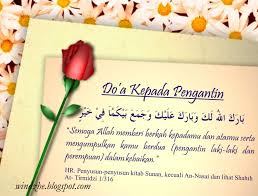 Do'a Kepada Pengantin
بَارَكَ اللهُ لَكَ وَبَارَكَ عَلَيْكَ وَجَمَعَ بَيْنَكُمَا فِيْ خَيْرٍ
"Semoga Allah memberi berkah kepadamu dan atasmu serta
mengumpulkan kamu berdua (pengantin laki-laki dan
perempuan) dalam kebaikan."
HR. Penyusun-penyusun kitab Sunan, kecuali An-Nasai dan lihat Shahih
At- Tirmidzi 1/316
blogspot.com